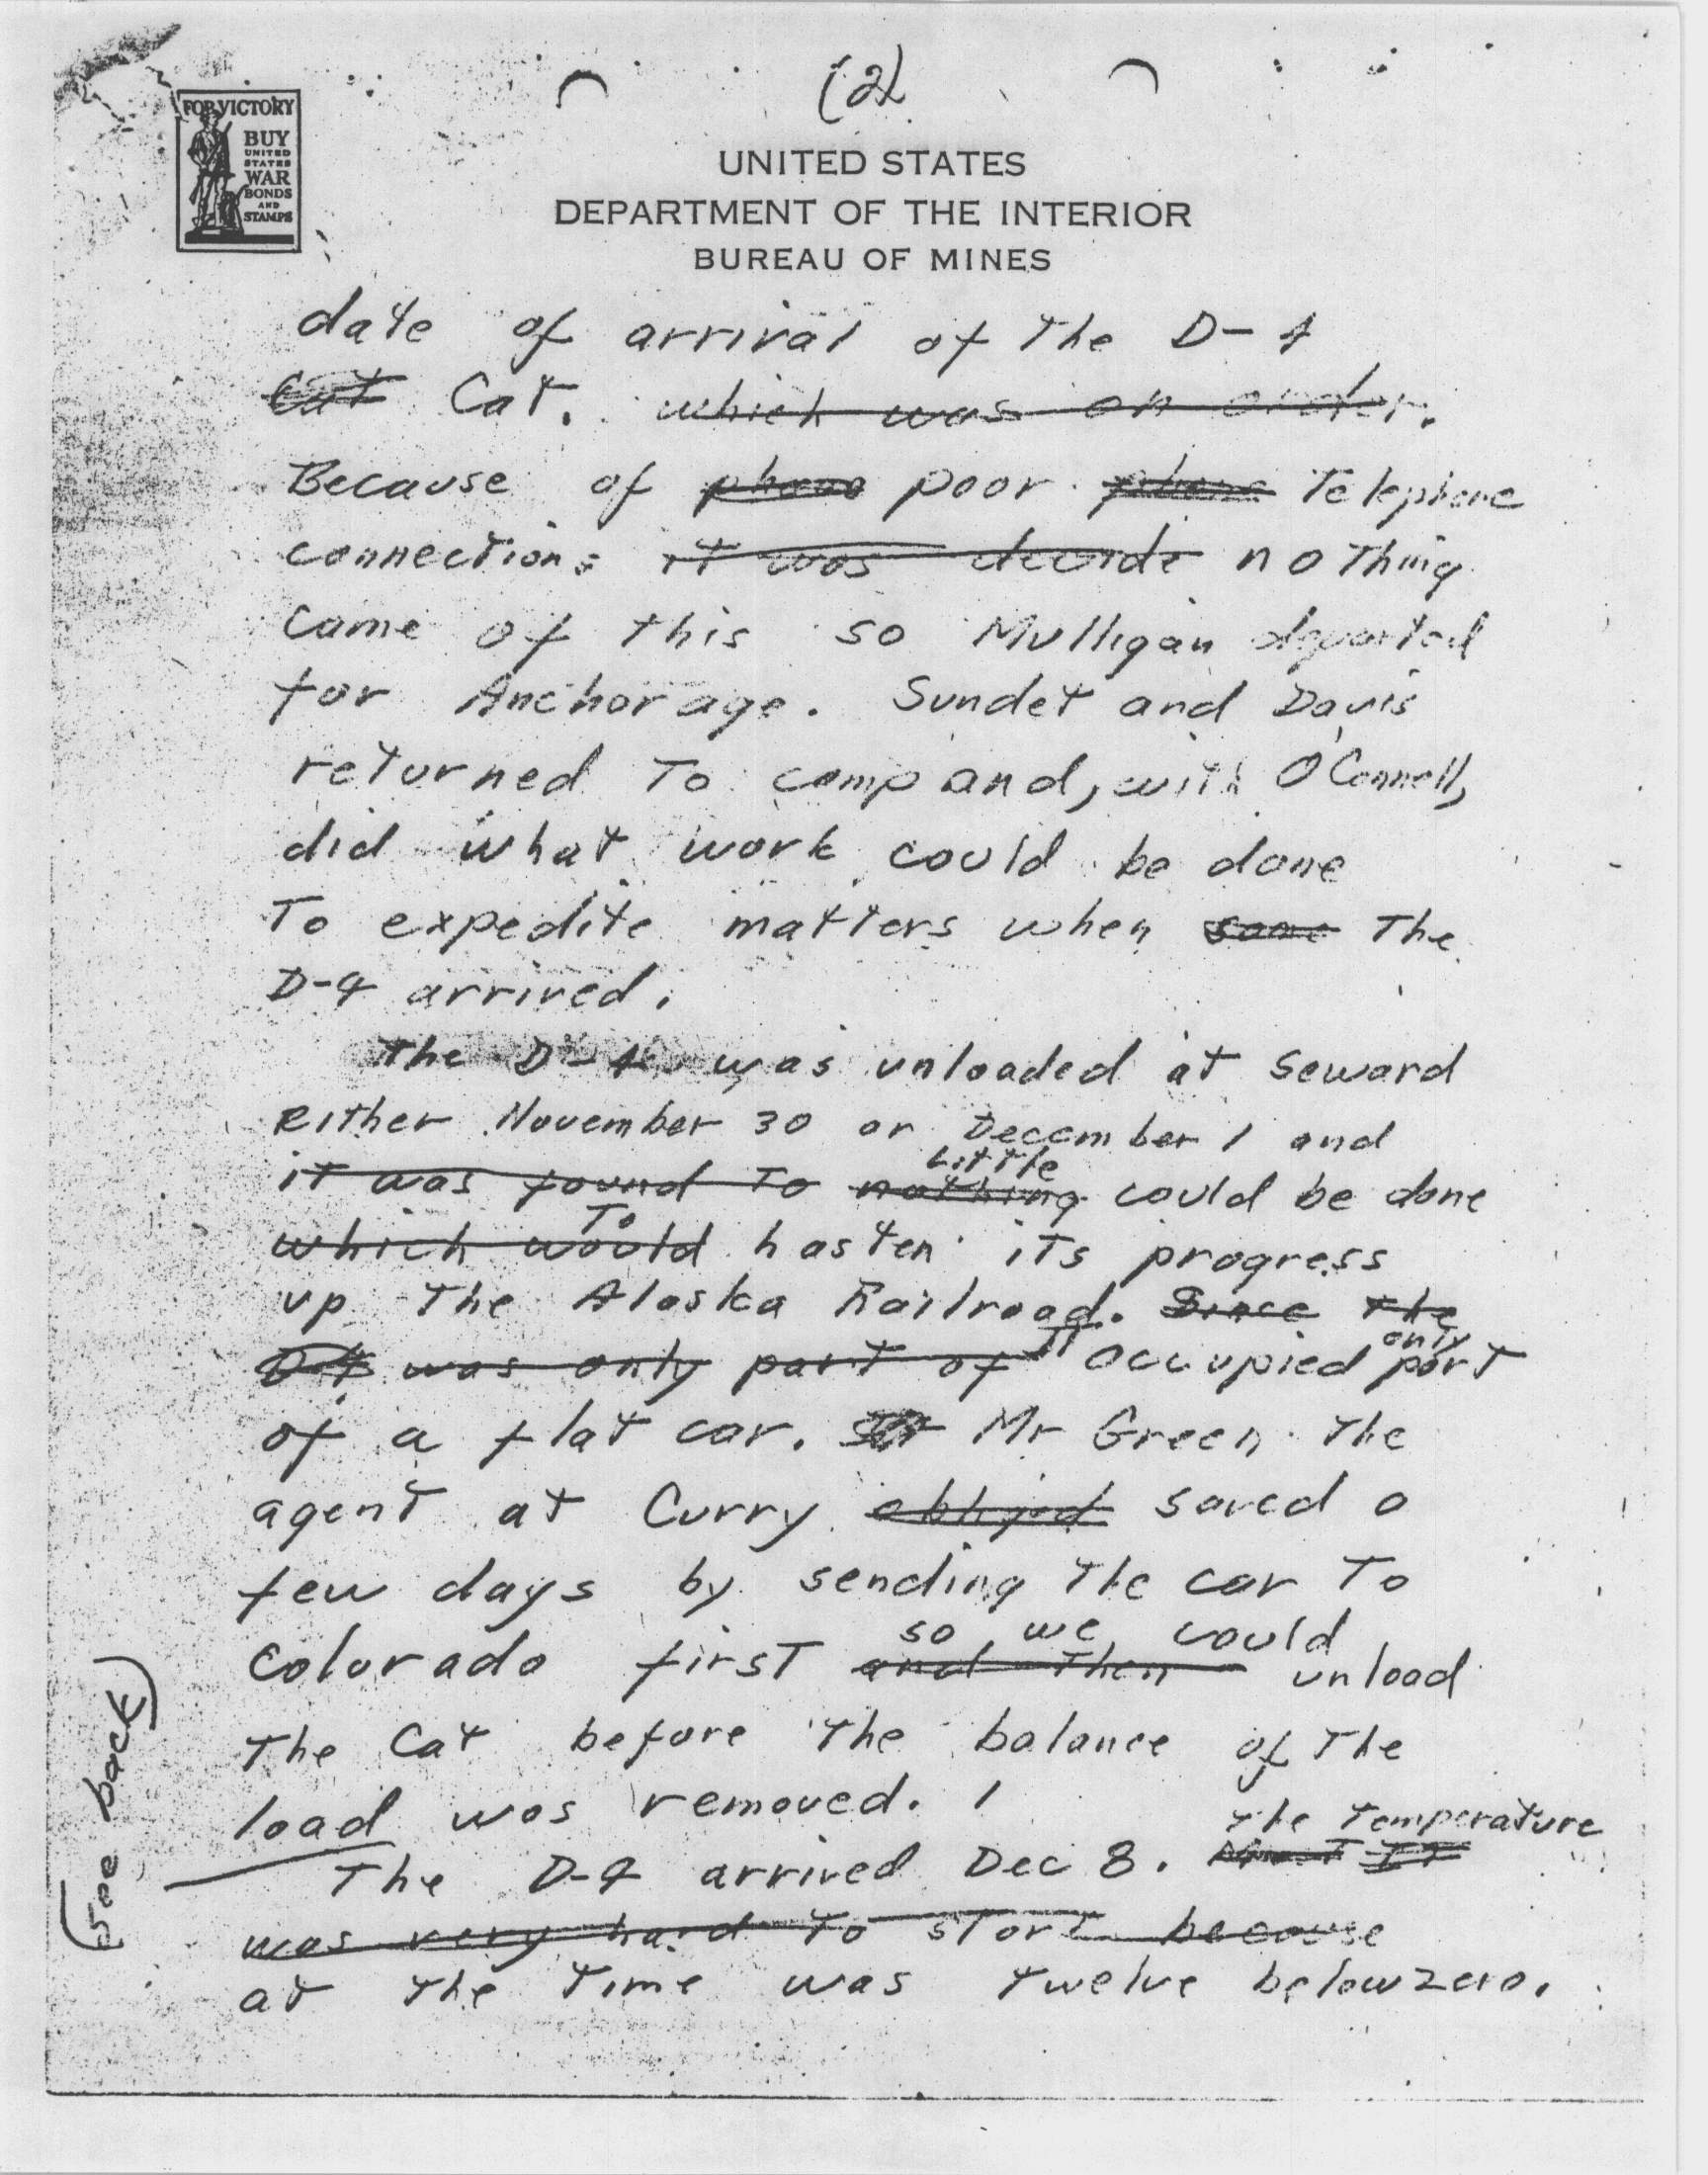 (2)
FOR VICTORY
BUY
UNITED
STATES
WAR
BONDS
AND
STAMPS
UNITED STATES
DEPARTMENT OF THE INTERIOR
BUREAU OF MINES
date of arrival of the D-4
Cat Cat. which was on order.
Because of phone poor phone Telephone
connections it was decide nothing
came of this so Mulligan departed
for Anchorage. Sundet and Davis
returned To camp and, with O'Connell,
did what work could be done
To expedite matters when some The
D-4 arrived.
The D-4 was unloaded at Seward
Either November 30 or December 1 and
Little
it was found To nothing could be done
To
which would hasten its progress
up The Alaska Railroad. Since the
only
D4 was only part of It occupied part
of a flat car. Mr Green the
agent at Curry obliged saved a
few days by sending the car To
so we could
Colorado first and then unload
The Cat before the balance of The
load was removed. 1
The Temperature
The D-4 arrived Dec 8. It
was very hard To start because
at the Time was Twelve below zero.
(See back)